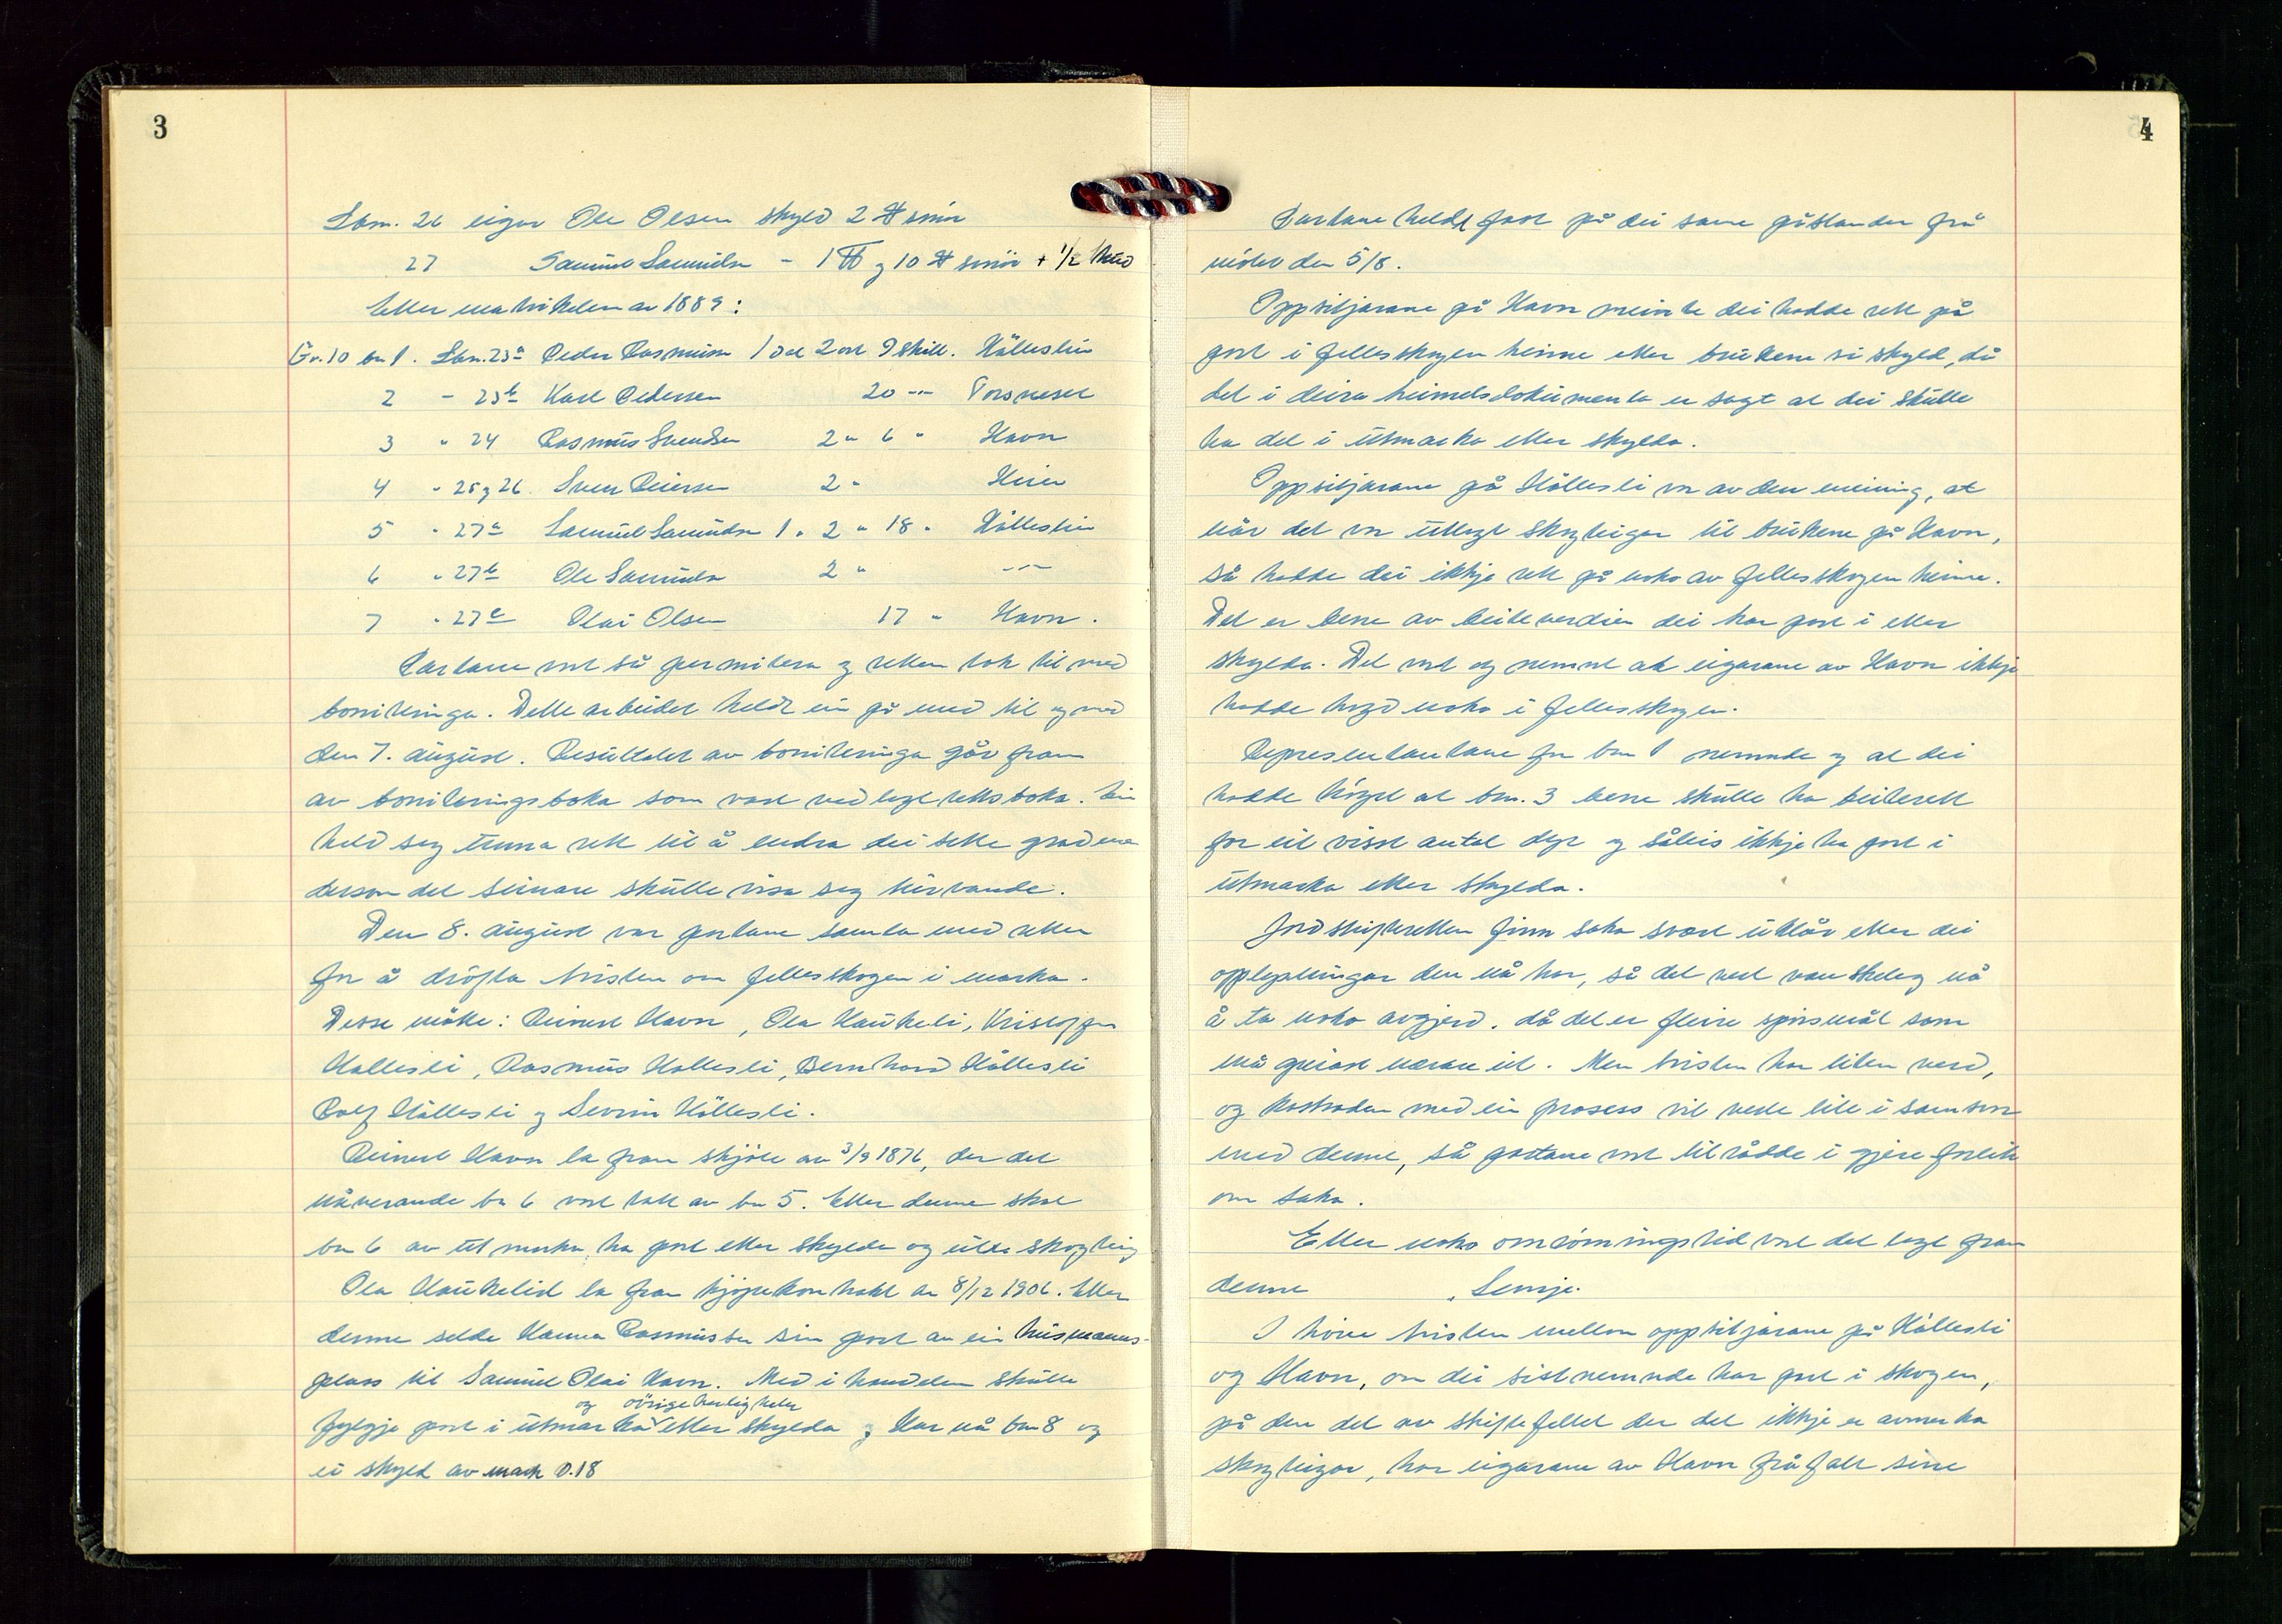 3
Lbm. 26 eigar Ole Olsen skyld 2 ℔ smör
27 Samuel Samuelsen - 1 og 10 ℔ smör + 1/2 hud
Etter matrikelen av 1889:
Gr. 10 bn 1. Lbn. 23a Peder Rasmussen 1 dal 2 ort 9 skill. Hålleslien
2 - 23b Karl Pedersen 20 -"- Torsneset
3 " 24 Rasmus Svendsen 2 " 6 " Havn
4 " 25 og 26. Sven Peiersen 2 "
5 " 27a Samuel Samuelsen 1 " 2 " 18 " Hålleslien
6 " 27b Ole Samuelsen 2 " -"-
7 " 27c Olai Olsen 17 " Havn.
Partane vart så permitera og retten tok til med
boniteringa. Dette arbeidet heldt ein på med til og med
den 7. august. Resultatet av boniteringa går fram
av boniteringsboka som vart vedlagt rettsboka. Ein
held seg unna rett til å endra dei sette gradene
dersom det seinare skulle visa seg turvande.
Den 8. august var partane samla med retten
for å dröfta tvisten om fellesskogen i marka.
Desse møtte: Reinert Havn, Ola Haukeli, Kristoffer
Hallesli, Rasmus Hallesli, Bernhard Hållesli
Rolf Hållesli og Severin Hållesli.
Reinert Havn la fram skjöte av 3/9 1876, der det
nåverande bn 6 vart tatt av bn 5. Etter denne skal
bn 6 av utmarka, ha part etter skylda og utlagt skogteig
Ola Haukelid la fram kjöpekontrakt av 8/12 1906. Etter
denne selde Hanna Rasmussen sin part av ein husmanns-
plass til Samuel Olai Havn. Med i handelen skulle
og övrige herligheter
fylgje part i utmarka etter skylda og har nå bn 8 og
ei skyld av mark 0.18
4
Partane heldt fast på dei same påstander frå
møtet den 5/8.
Oppsitjarane på Havn meinte dei hadde rett på
part i fellesskogen heime etter brukene si skyld, då
det i deira heimelsdokumenta er sagt at dei skulle
ha del i utmarka etter skylda.
Oppsitjarane på Hållesli var av den meining, at
når det var utlagt skogteigar til brukene på Havn,
så hadde dei ikkje rett på noko av fellesskogen heime.
Det er berre av beiteverdien dei har part i etter
skylda. Det vart og nemnt at eigarane av Havn ikkje
hadde hogd noko i fellesskogen.
Representantane for bn 1 nemnde og at dei
hadde höyrt at bn. 3 berre skulle ha beiterett
for eit visst antal dyr og såleis ikkje ha part i
utmarka etter skylda.
Jordskifteretten finn saka svært uklår etter dei
opplysningar den nå har, så det vert vanskeleg nå
å ta noko avgjerd. då det er fleire spörsmål som
må greiast nærare ut. Men tvisten har liten verd,
og kostnaden med ein prosess vil verte lite i samsvar
med denne, så partane vart tilrådde å gjere forlik
om saka.
Etter noko omröningstid vart det lagt fram
denne Semje.
I höve tvisten mellom oppsitjarane på Hållesli
og Havn, om dei sistnemnde har part i skogen,
på den del av skiftefeltet der det ikkje er avmerka
skogteigar, har eigarane av Havn fråfalt sine